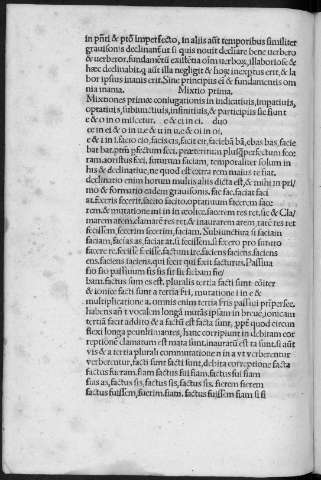 in pñti & ptõ imperfecto, in aliis aũt temporibus similiter
grauisonis declinant̃ ut si quis nouit declĩare bene uerbero
& uerberor, fundamẽtũ existẽna oĩm uerboꝝ, illaboriose &
hæc declinabit. q aũt illa negligit & hoꝝ inexptus erit, & la
bor ipsius inanis erit. Sine principiis eĩ & fundamentis om
nia inania. Mixtio prima.
Mixtiones primæ coniugationis in indicatiuis, impatiuis,
optatiuis, subiunctiuis, infinitiuis, & participiis sic fiunt
e & o in o milictur. e & ei in ei. duo
ee in ei & o in u. e & u in u, e & oi in oi,
e & i in i. facio cio, facis cis, facit cit, faciebã bã, ebas bas, facie
bat bat. ptm̃ pfectum feci. præteritum plusq̃perfectum fece
ram. aoristus feci, futurum faciam, temporaliter solum in
his & declinatiue, ne quod est extra rem maius te fiat.
declinatio enim horum multis aliis dicta est, & mihi in pri/
mo & formatio eadem grauisonis. fac fac, faciat faci
at. feceris fecerit, facito facito. optatiuum facerem face
rem, & mutatione mi in in æolice. facerem res ret. sic & Cla/
marem arem, clamarẽ res ret, & inaurarem arem rarẽ res ret
fecissem, fecerim fecerim, faciam. Subiunctiua si faciam
faciam, facias as, faciat at. si fecissem. si fecero pro futuro
facere re. fecisse fecisse. facturũ ire. faciens faciens, faciens
ens, faciens faciens, qui fecit qui fecit facturus. Passiua
fio fio passiuum fis fis fit fit fiebam fie/
bam. factus sum es est. pluralis tertia facti sunt cõiter
& ionice facti sunt a tertia fri, mutatione i in e &
multiplicatione a. omnis enim tertia fris passiui p̃persec.
habens añ t vocalem longã mutãs ipsam in breuẽ, ionicam
tertiã facit addito & a factũ est facta sunt, ppt̃ quod eirum
flexi longa penultimantes, hanc corripiunt in debitam cor
reptionẽ clamatum est mata sunt, inauratũ est ta sunt. si aũt
vis & a tertia plurali commutatione n in a vt verberentur
verberentur, facti sunt facti sunt, debita correptione facta
factus fueram. fiam factus fui fiam. factus fui fiam
fias as, factus sis, factus sis, factus sis. fierem fierem
factus fuissem, fuerim. fiam. factus fuissem fiam si si